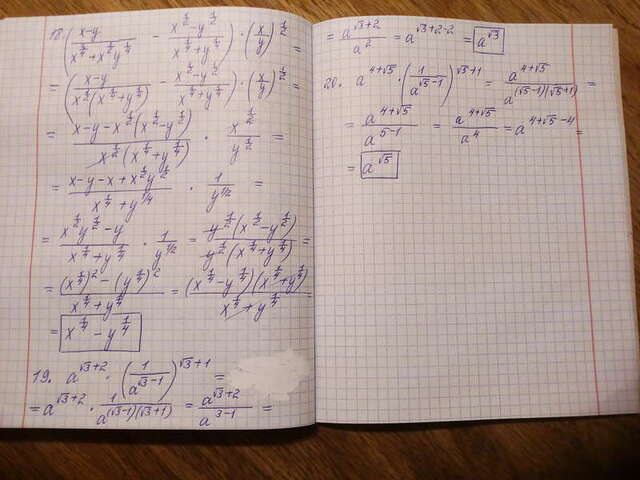 18. ( (x-y)/(x^(3/4)+x^(1/2)y^(1/4)) - (x^(1/2)-y^(1/2))/(x^(1/4)+y^(1/4)) ) · (x/y)^(1/2) =
= ( (x-y)/(x^(1/2)(x^(1/4)+y^(1/4))) - (x^(1/2)-y^(1/2))/(x^(1/4)+y^(1/4)) ) · (x/y)^(1/2) =
= (x-y-x^(1/2)(x^(1/2)-y^(1/2)))/(x^(1/2)(x^(1/4)+y^(1/4))) · x^(1/2)/y^(1/2) =
= (x-y-x+x^(1/2)y^(1/2))/(x^(1/4)+y^(1/4)) · 1/y^(1/2) =
= (x^(1/2)y^(1/2)-y)/(x^(1/4)+y^(1/4)) · 1/y^(1/2) = (y^(1/2)(x^(1/2)-y^(1/2)))/(y^(1/2)(x^(1/4)+y^(1/4))) =
= ((x^(1/4))^2-(y^(1/4))^2)/(x^(1/4)+y^(1/4)) = ((x^(1/4)-y^(1/4))(x^(1/4)+y^(1/4)))/(x^(1/4)+y^(1/4)) =
= x^(1/4)-y^(1/4)
19. a^(√3+2) · (1/a^(√3-1))^(√3+1) =
= a^(√3+2) · 1/a^((√3-1)(√3+1)) = a^(√3+2)/a^(3-1) =
= a^(√3+2)/a^2 = a^(√3+2-2) = a^(√3)
20. a^(4+√5) · (1/a^(√5-1))^(√5+1) = a^(4+√5)/a^((√5-1)(√5+1)) =
= a^(4+√5)/a^(5-1) = a^(4+√5)/a^4 = a^(4+√5-4) =
= a^(√5)